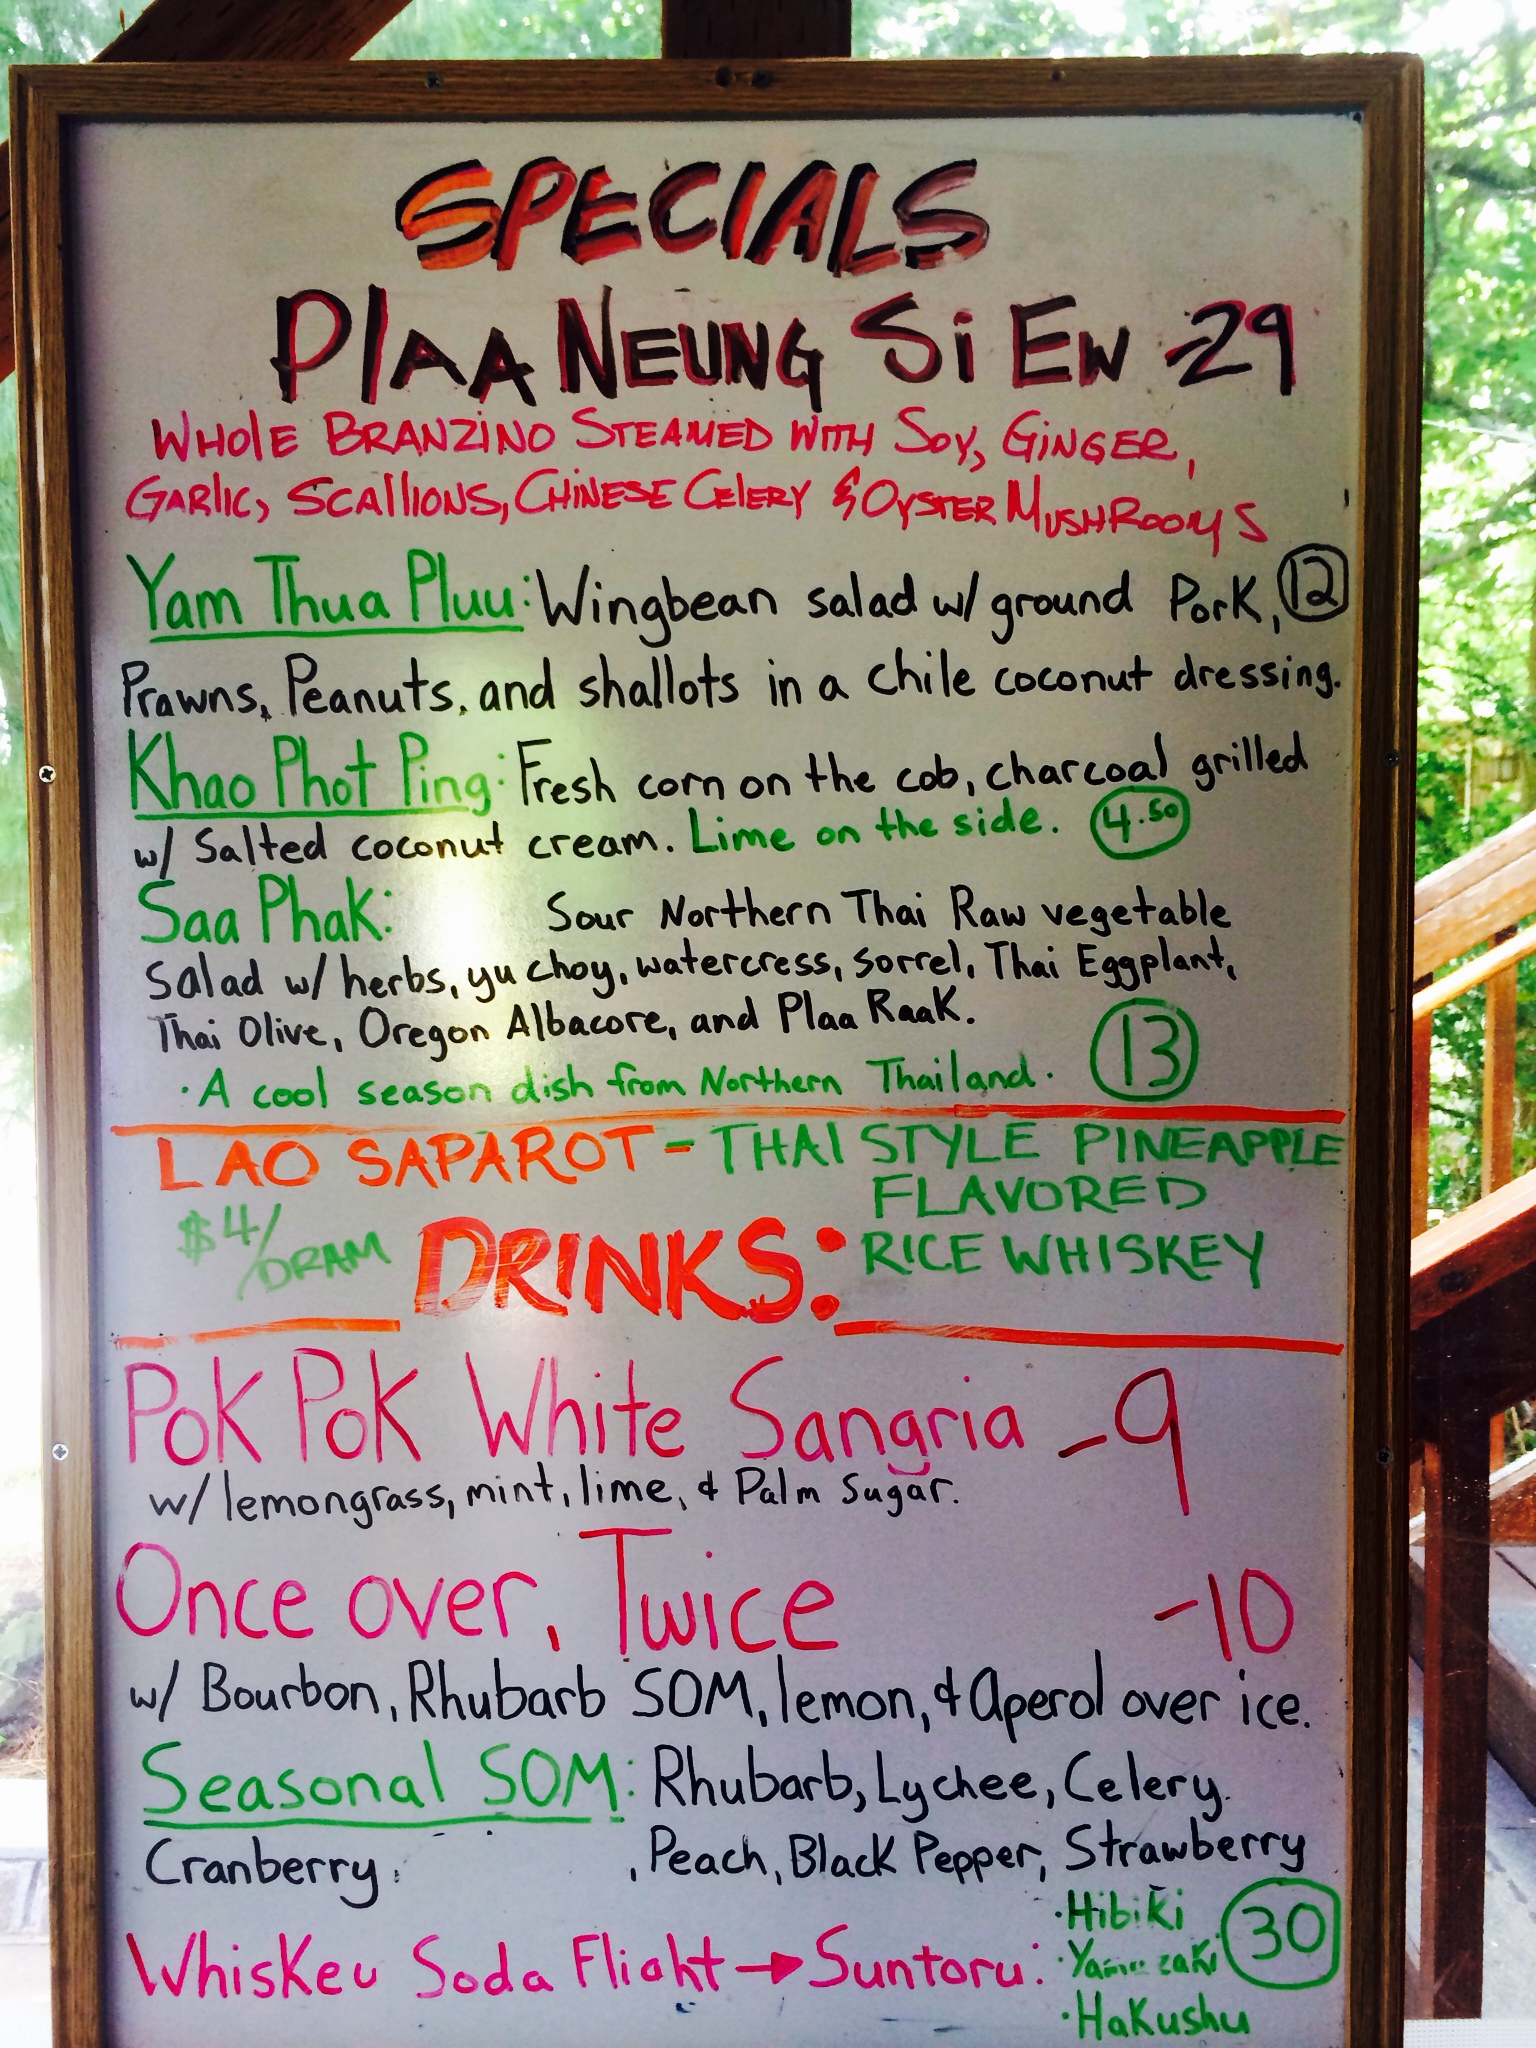 SPECIALS
PlAA NEUNG Si EW -29
WHOlE BRANZiNO STEAMED WITH SOY, GiNGER,
GARlIC, SCAllIONS, CHiNESE CElERY & OYSTER MUSHROOMS
Yam Thua Pluu: Wingbean salad w/ ground Pork, 12
Prawns, Peanuts, and shallots in a chile coconut dressing.
Khao Phot Ping: Fresh corn on the cob, charcoal grilled
w/ Salted coconut cream. Lime on the side. 4.50
Saa Phak: Sour Northern Thai Raw vegetable
salad w/ herbs, yu choy, watercress, sorrel, Thai Eggplant,
Thai Olive, Oregon Albacore, and Plaa Raak.
· A cool season dish from Northern Thailand. 13
LAO SAPAROT - THAI STYLE PINEAPPLE
FLAVORED
RICE WHISKEY
$4/DRAM
DRINKS:
Pok Pok White Sangria -9
w/ lemongrass, mint, lime, & Palm Sugar.
Once over, Twice -10
w/ Bourbon, Rhubarb SOM, lemon, & Aperol over ice.
Seasonal SOM: Rhubarb, Lychee, Celery,
Cranberry, , Peach, Black Pepper, Strawberry
Whiskey Soda Flight → Suntory: 30
· Hibiki
· Yamazaki
· Hakushu